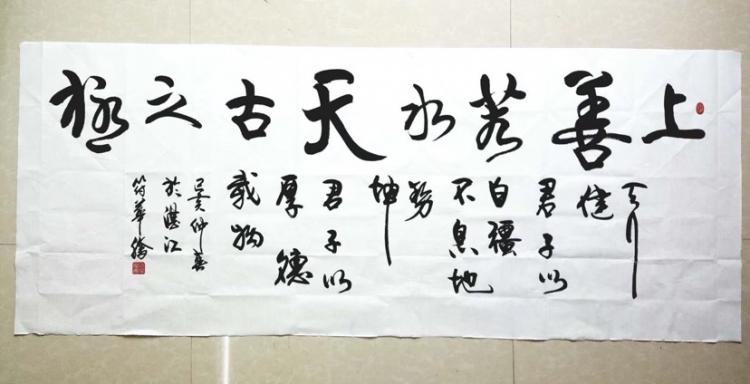 上善若水天古之極
天行
健
君子以
自彊
不息地
势
坤
君子以
厚德
載物
己亥仲春
於湛江
符華